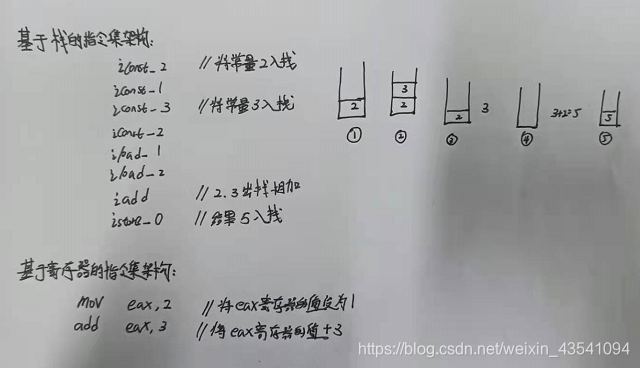 基于栈的指令集架构:
iconst_2 //将常量2入栈
iconst_1
iconst_3 //将常量3入栈
iconst_2
iload_1
iload_2
iadd //2.3出栈相加
istore_0 //结果5入栈
2 3 2 2 3 3+2=5 5
① ② ③ ④ ⑤
基于寄存器的指令集架构:
mov eax,2 //将eax寄存器的值设为1
add eax,3 //将eax寄存器的值+3
https://blog.csdn.net/weixin_43541094